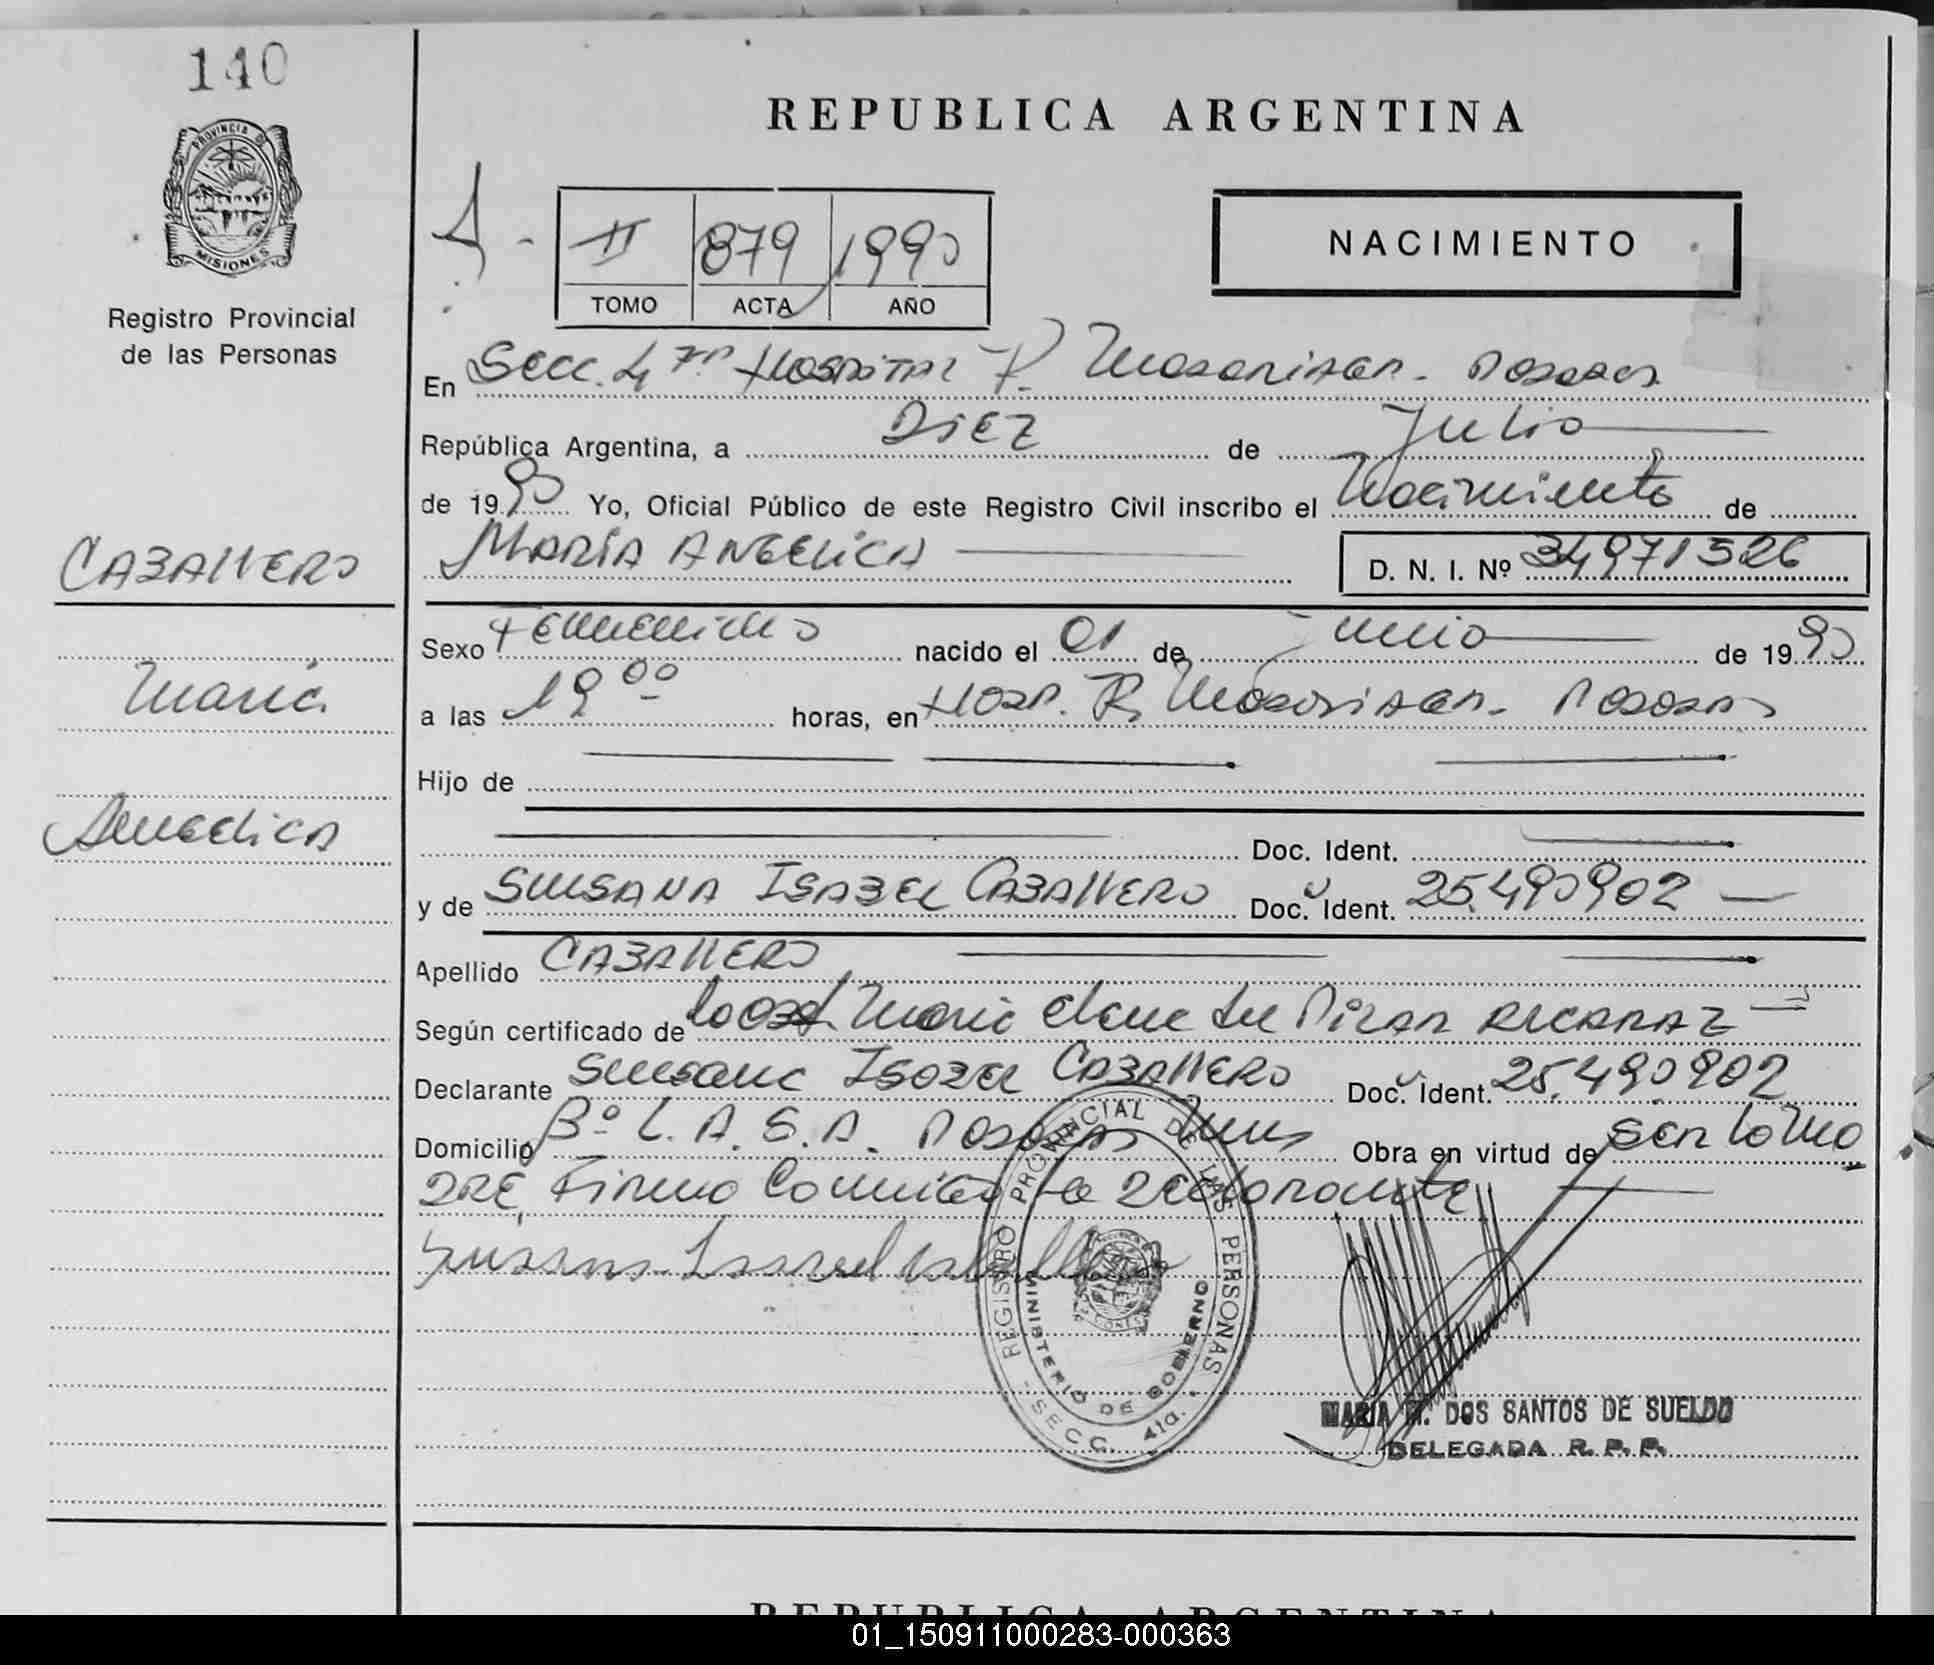 140
PROVINCIA DE
MISIONES
Registro Provincial
de las Personas
CABALLERO
Maria
Angelica
REPUBLICA ARGENTINA
II 879 1990
TOMO ACTA AÑO
NACIMIENTO
En Secc. 4ta Hospital R. Madariaga. Posadas
República Argentina, a DIEZ de Julio
de 1990 Yo, Oficial Público de este Registro Civil inscribo el Nacimiento de
MARIA ANGELICA D. N. I. Nº 34971526
Sexo Femenino nacido el 01 de Junio de 1990
a las 19 00 horas, en Hosp. R. Madariaga. Posadas
Hijo de
Doc. Ident.
y de SUSANA ISABEL CABALLERO Doc. Ident. 25.490902
Apellido CABALLERO
Según certificado de la Obst. Maria Elena del Pilar ALCARAZ
Declarante Susana Isabel CABALLERO Doc. Ident. 25.490.902
Domicilio Bº L.A.E.A. Posadas Mnes Obra en virtud de ser la Ma
dre, Firma Conmigo la declarante
Susana Isabel Caballero
REGISTRO PROVINCIAL DE LAS PERSONAS
MINISTERIO DE GOBIERNO
- SECC. 4ta. -
MARIA M. DOS SANTOS DE SUELDO
DELEGADA R. P. P.
REPUBLICA ARGENTINA
01_150911000283-000363